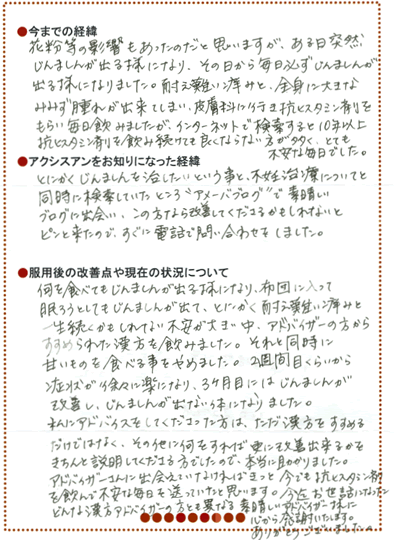 ●今までの経緯
花粉等の影響もあったのだと思いますが、ある日突然
じんましんが出る様になり、その日から毎日必ずじんましんが
出る様になりました。耐え難い痒みと、全身に大きな
みみず腫れが出来てしまい、皮膚科に行き抗ヒスタミン剤を
もらい毎日飲みましたが、インターネットで検索すると10年以上
抗ヒスタミン剤を飲み続けても良くならない方が多く、とても
不安な毎日でした。
●アクシスアンをお知りになった経緯
とにかくじんましんを治したいという事と、不妊治療についてと
同時に検索していたところ“アメーバブログ”で素晴しい
ブログに出会い、この方なら改善してくださるかもしれないと
ピンと来たので、すぐに電話で問い合わせをしました。
●服用後の改善点や現在の状況について
何を食べてもじんましんが出る様になり、布団に入って
眠ろうとしてもじんましんが出て、とにかく耐え難い痒みと
一生続くかもしれない不安が大きい中、アドバイザーの方から
すすめられた漢方を飲みました。それと同時に
甘いものを食べる事をやめました。2週間目くらいから
症状が徐々に楽になり、3ヶ月目にはじんましんが
改善し、じんましんが出ない体になりました。
私にアドバイスをしてくださった方は、ただ漢方をすすめる
だけではなく、その他に何をすれば更に改善出来るかを
きちんと説明してくださる方でしたので、本当に助かりました。
アドバイザーさんに出会えていなければきっと今でも抗ヒスタミン剤
を飲んで不安な毎日を送っていたと思います。今迄お世話になった
どんな漢方アドバイザーの方とも異なる素晴しいアドバイザー様に
心から感謝いたします。
ありがとうございました。